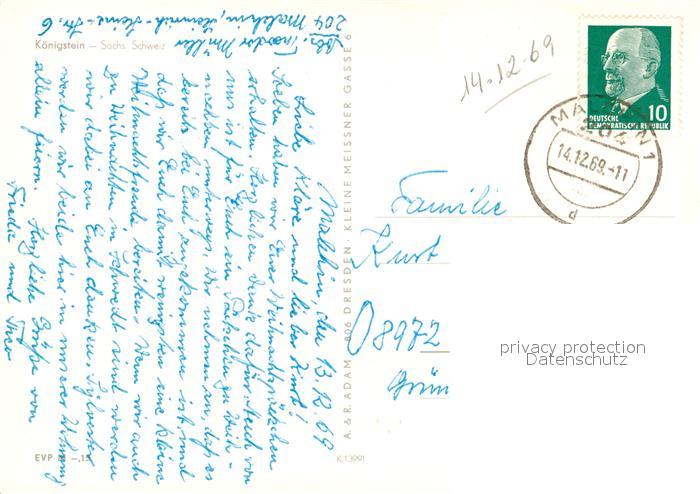 Abs. Theodor Müller
204 Malchin, Heinrich-Heine-Str. 6
Königstein – Sächs. Schweiz
Malchin, den 13.12.69
Liebe Kläre und lieber Kurt!
Soeben haben wir Euer Weihnachtspäckchen
erhalten. Herzlichen Dank dafür. Auch von
uns ist für Euch ein Päckchen zu Weih-
nachten unterwegs. Wir nehmen an, daß es
bereits bei Euch angekommen ist und
daß wir Euch damit wenigstens eine kleine
Weihnachtsfreude bereiten. Wenn wir auch
zu Weihnachten in Schwedt sind werden
wir dabei an Euch denken. Sylvester
werden wir beide hier in unserer Wohnung
allein feiern. Herzliche Grüße von
Frieda und Theo
EVP M –,15
A. & R. ADAM 806 DRESDEN KLEINE MEISSNER GASSE 6
K 13991
14.12.69
DEUTSCHE
DEMOKRATISCHE REPUBLIK
10
MALCHIN 1
204
14.12.69.-11
d
Familie
Kurt
O 8972
Grün
privacy protection
Datenschutz